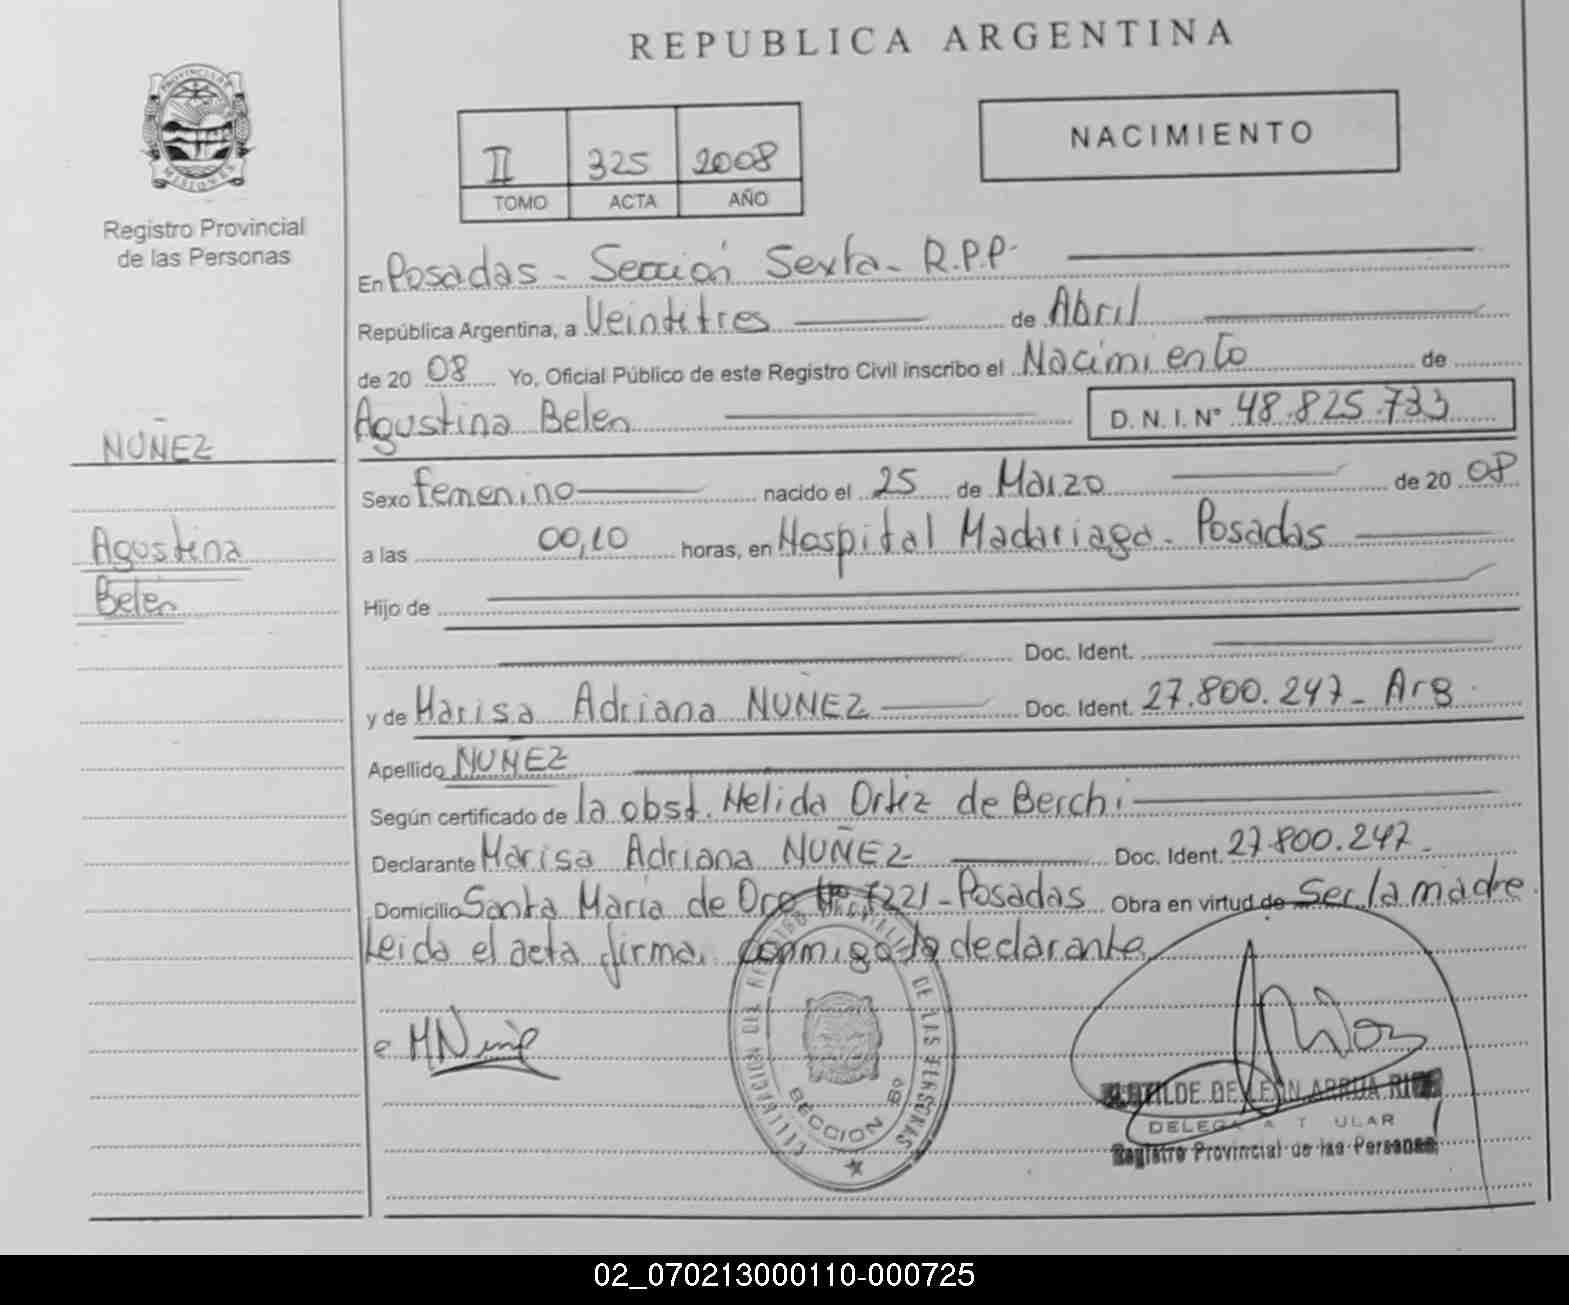 REPUBLICA ARGENTINA
PROVINCIA DE
MISIONES
Registro Provincial
de las Personas
II 325 2008
TOMO ACTA AÑO
NACIMIENTO
En Posadas - Sección Sexta - R.P.P.
República Argentina, a Veintitres de Abril
de 20 08 Yo, Oficial Público de este Registro Civil inscribo el Nacimiento de
Agustina Belen D. N. I. N° 48.825.733
NUÑEZ
Agustina
Belen
Sexo femenino nacido el 25 de Marzo de 20 08
a las 00,10 horas, en Hospital Madariaga - Posadas
Hijo de
Doc. Ident.
y de Marisa Adriana NUÑEZ Doc. Ident. 27.800.247 - Arg.
Apellido NUÑEZ
Según certificado de la obst. Nelida Ortiz de Berchi
Declarante Marisa Adriana NUÑEZ Doc. Ident. 27.800.247 -
Domicilio Santa María de Oro N° 7221 - Posadas Obra en virtud de Ser la madre
Leida el acta firma conmigo la declarante
SECCION 6°
DE LAS PERSONAS
CLOTILDE DE LEON ARRUA RIOS
DELEGADA TITULAR
Registro Provincial de las Personas
02_070213000110-000725